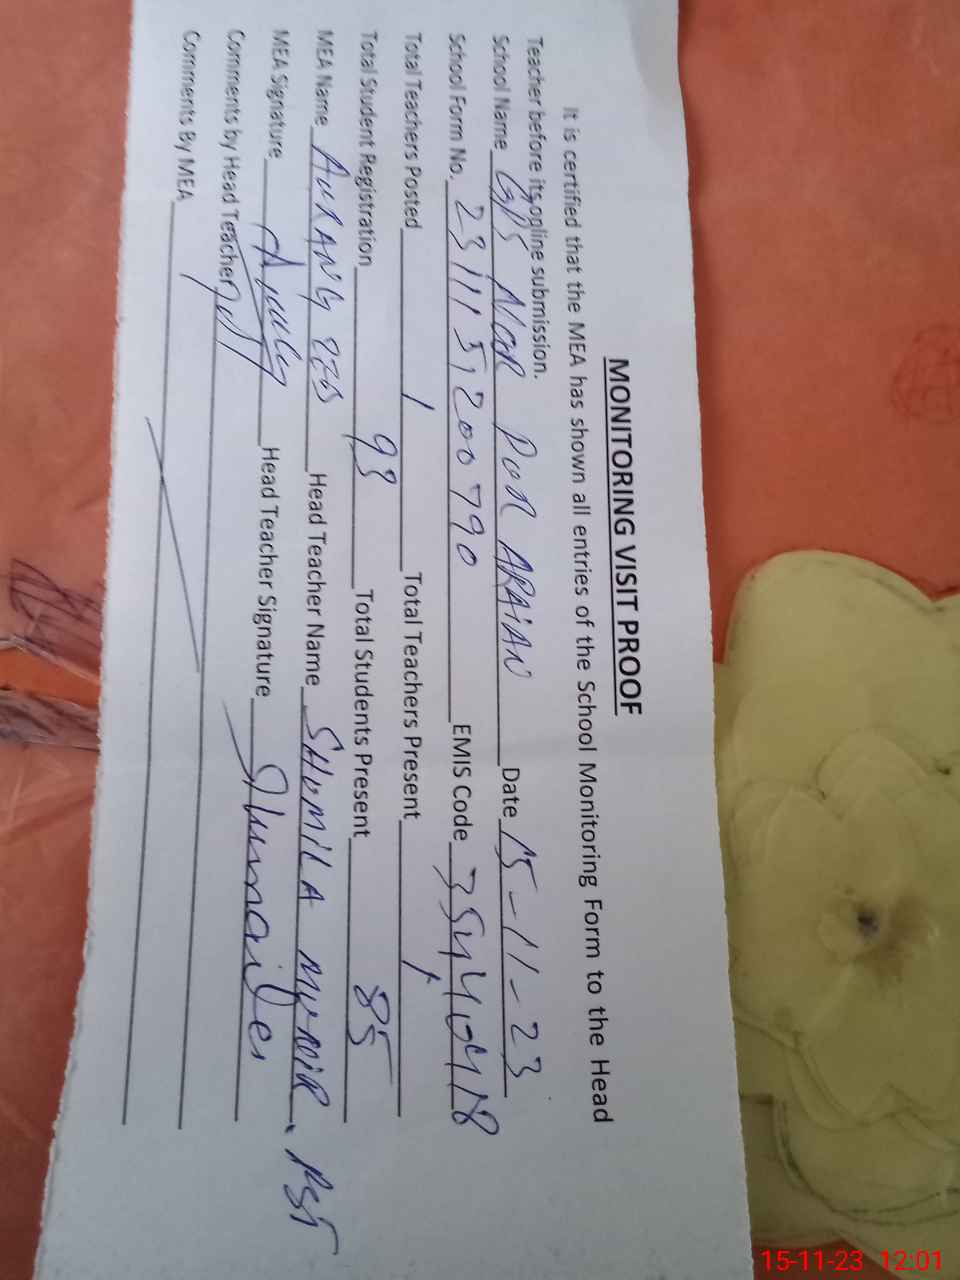 MONITORING VISIT PROOF
It is certified that the MEA has shown all entries of the School Monitoring Form to the Head
Teacher before its online submission.
School Name GPS NOOR PUR ARAiAN Date 15-11-23
School Form No. 231115,200790 EMIS Code 35440418
Total Teachers Posted 1 Total Teachers Present 1
Total Student Registration 93 Total Students Present 85
MEA Name AURANG ZEB Head Teacher Name SHUMILA MUNIR. PST
MEA Signature Head Teacher Signature
Comments by Head Teacher
Comments By MEA
15-11-23 12:01